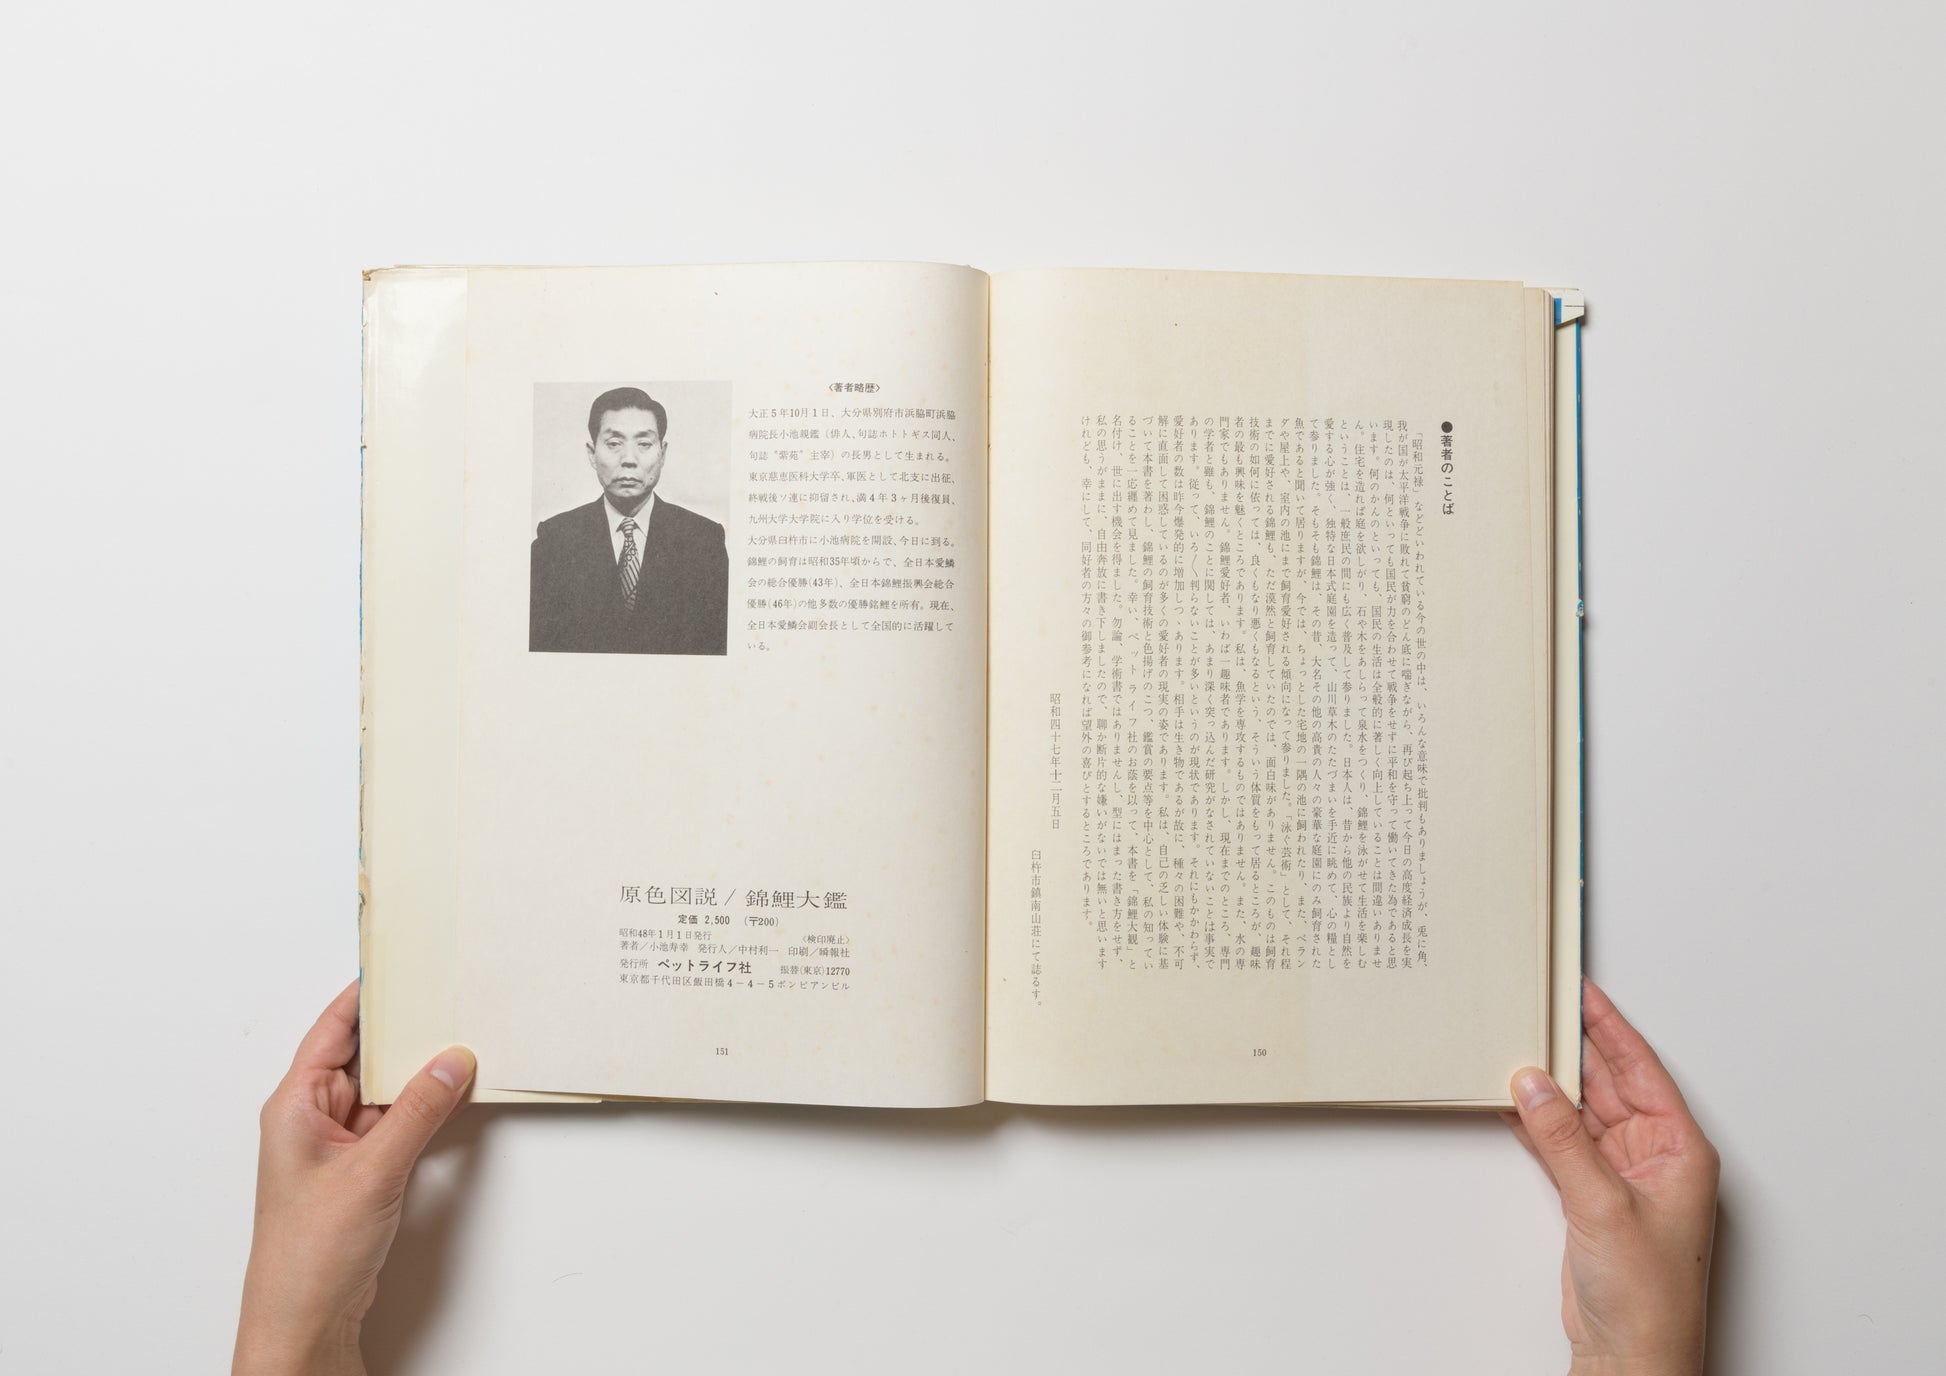 ●著者のことば
「昭和元禄」などといわれている今の世の中は、いろんな意味で批判もありましょうが、兎に角、
我が国が太平洋戦争に敗れて貧窮のどん底に喘ぎながら、再び起ち上って今日の高度経済成長を実
現したのは、何といっても国民が力を合わせて戦争をせずに平和を守って働いてきた為であると思
います。何のかんのといっても、国民の生活は全般的に著しく向上していることは間違いありませ
ん。住宅を造れば庭を欲しがり、石や木をあしらって泉水をつくり、錦鯉を泳がせて生活を楽しむ
ということは、一般庶民の間にも広く普及して参りました。日本人は、昔から他の民族より自然を
愛する心が強く、独特な日本式庭園を造って、山川草木のたたづまいを手近に眺めて、心の糧とし
て参りました。そもそも錦鯉は、その昔、大名その他の高貴の人々の豪華な庭園にのみ飼育された
魚であると聞いて居りますが、今では、ちょっとした宅地の一隅の池に飼われたり、また、ベラン
ダや屋上や、室内の池にまで飼育愛好される傾向になって参りました。「泳ぐ芸術」として、それ程
までに愛好される錦鯉も、ただ漠然と飼育していたのでは、面白味がありません。このものは飼育
技術の如何に依っては、良くもなり悪くもなるという、そういう体質をもって居るところが、趣味
者の最も興味を魅くところであります。私は、魚学を専攻するものではありません。また、水の専
門家でもありません。錦鯉愛好者、いわば一趣味者であります。しかし、現在までのところ、専門
の学者と雖も、錦鯉のことに関しては、あまり深く突っ込んだ研究がなされていないことは事実で
あります。従って、いろ〳〵判らないことが多いというのが現状であります。それにもかかわらず、
愛好者の数は昨今爆発的に増加しつゝあります。相手は生き物であるが故に、種々の困難や、不可
解に直面して困惑しているのが多くの愛好者の現実の姿であります。私は、自己の乏しい体験に基
づいて本書を著わし、錦鯉の飼育技術と色揚げのこつ、鑑賞の要点等を中心として、私の知ってい
ることを一応纒めて見ました。幸い、ペットライフ社のお蔭を以って、本書を「錦鯉大観」と
名付け、世に出す機会を得ました。勿論、学術書ではありませんし、型にはまった書き方をせず、
私の思うがままに、自由奔放に書き下しましたので、聊か断片的な嫌いがないでは無いと思います
けれども、幸にして、同好者の方々の御参考になれば望外の喜びとするところであります。
昭和四十七年十二月五日
臼杵市鎮南山荘にて誌るす。
150
〈著者略歴〉
大正5年10月1日、大分県別府市浜脇町浜脇
病院長小池親鑑（俳人、句誌ホトトギス同人、
句誌〝紫苑〟主宰）の長男として生まれる。
東京慈恵医科大学卒、軍医として北支に出征、
終戦後ソ連に抑留され、満4年3ヶ月後復員、
九州大学大学院に入り学位を受ける。
大分県臼杵市に小池病院を開設、今日に到る。
錦鯉の飼育は昭和35年頃からで、全日本愛鱗
会の総合優勝(43年)、全日本錦鯉振興会総合
優勝(46年)の他多数の優勝銘鯉を所有。現在、
全日本愛鱗会副会長として全国的に活躍して
いる。
原色図説/錦鯉大鑑
定価 2,500 （〒200）
昭和48年1月1日発行 〈検印廃止〉
著者／小池寿幸 発行人／中村利一 印刷／瞬報社
発行所 ペットライフ社 振替(東京)12770
東京都千代田区飯田橋4－4－5ボンビアンビル
151